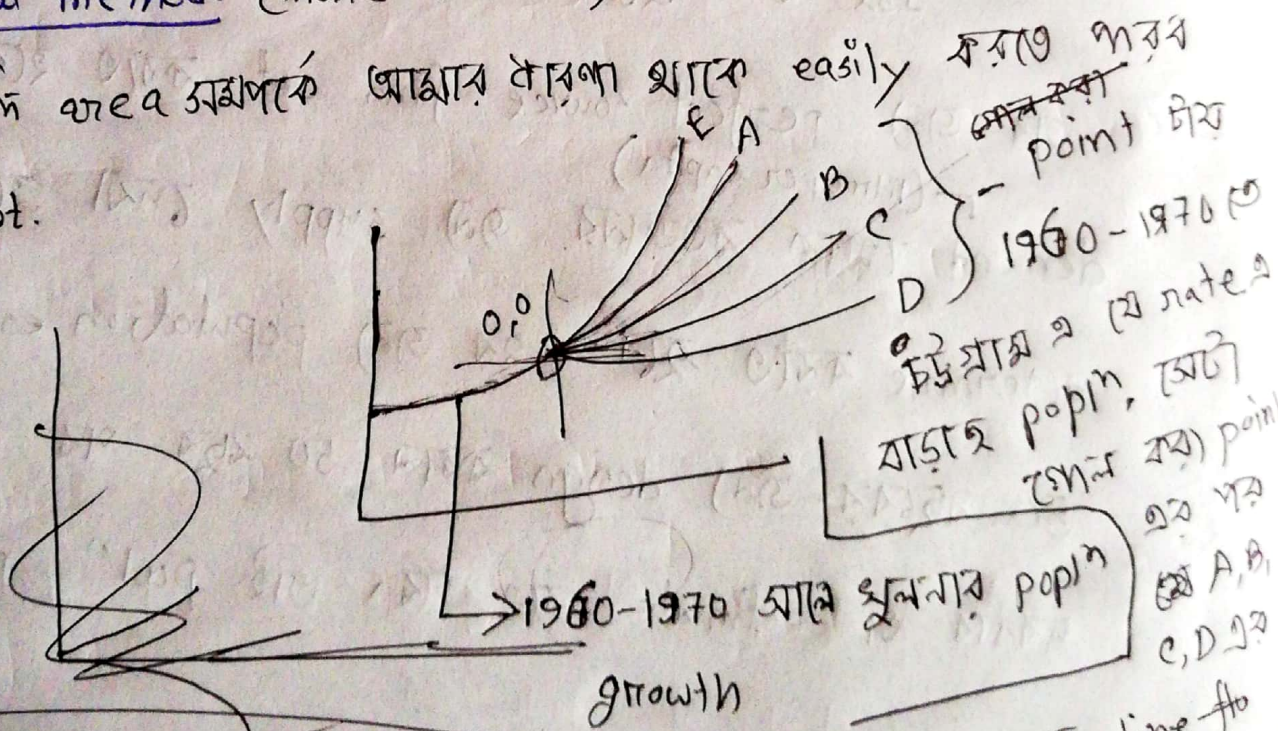 area সম্পর্কে আমার ধারণা থাকে easily করতে পারব
point টায়
E
A
B
C
D
0,0
1960-1970 তে
চট্টগ্রাম এ যে rate এ
বাড়ছে popln, সেটা
গোল করা point
এর পর
A, B,
C, D এর
→1960-1970 সালে খুলনার popln
growth